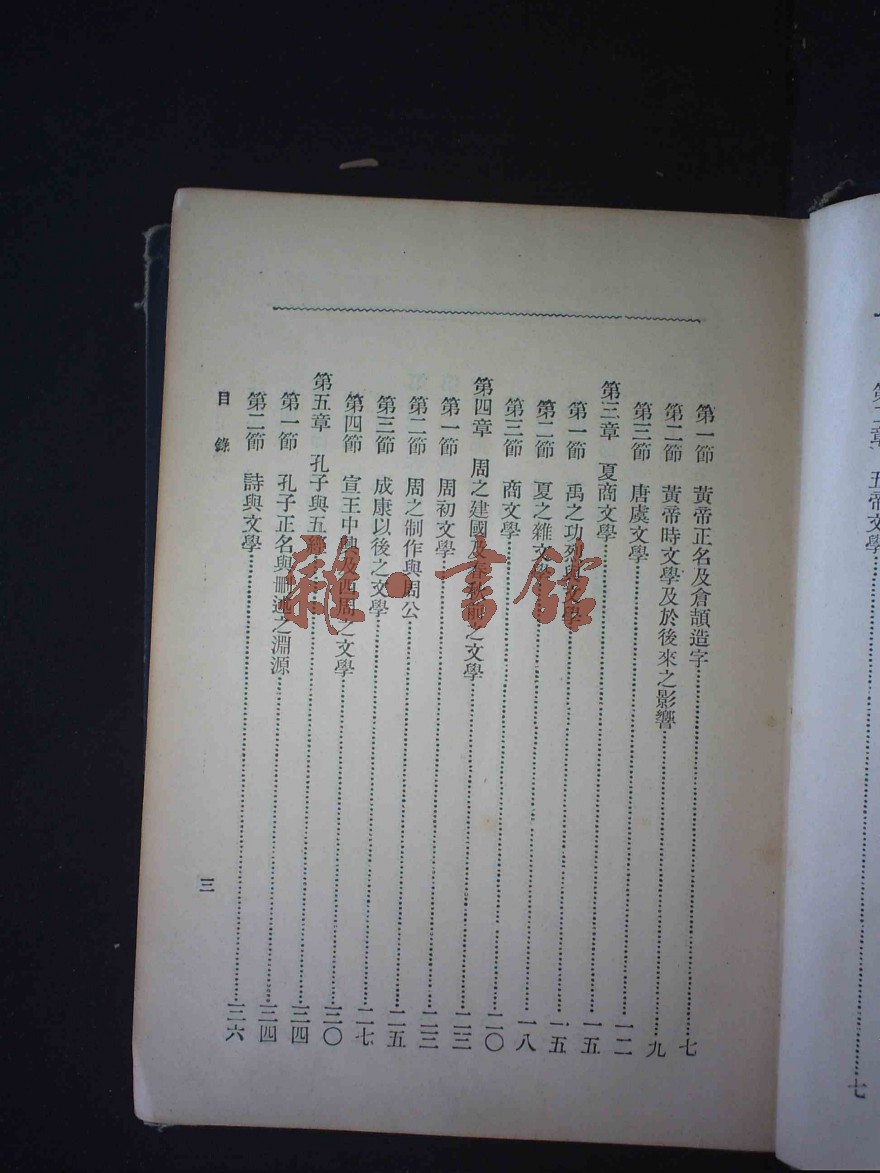 第二章 五帝文學 七
第一節 黃帝正名及倉頡造字 七
第二節 黃帝時文學及於後來之影響 九
第三節 唐虞文學 一二
第三章 夏商文學 一五
第一節 禹之功烈與文學 一五
第二節 夏之雜文學 一八
第三節 商文學 二〇
第四章 周之建國及春秋前之文學 二三
第一節 周初文學 二三
第二節 周之制作與周公 二五
第三節 成康以後之文學 二七
第四節 宣王中興及西周之文學 三〇
第五章 孔子與五經 三四
第一節 孔子正名與刪述之淵源 三四
第二節 詩與文學 三六
目錄
三
雜·書館